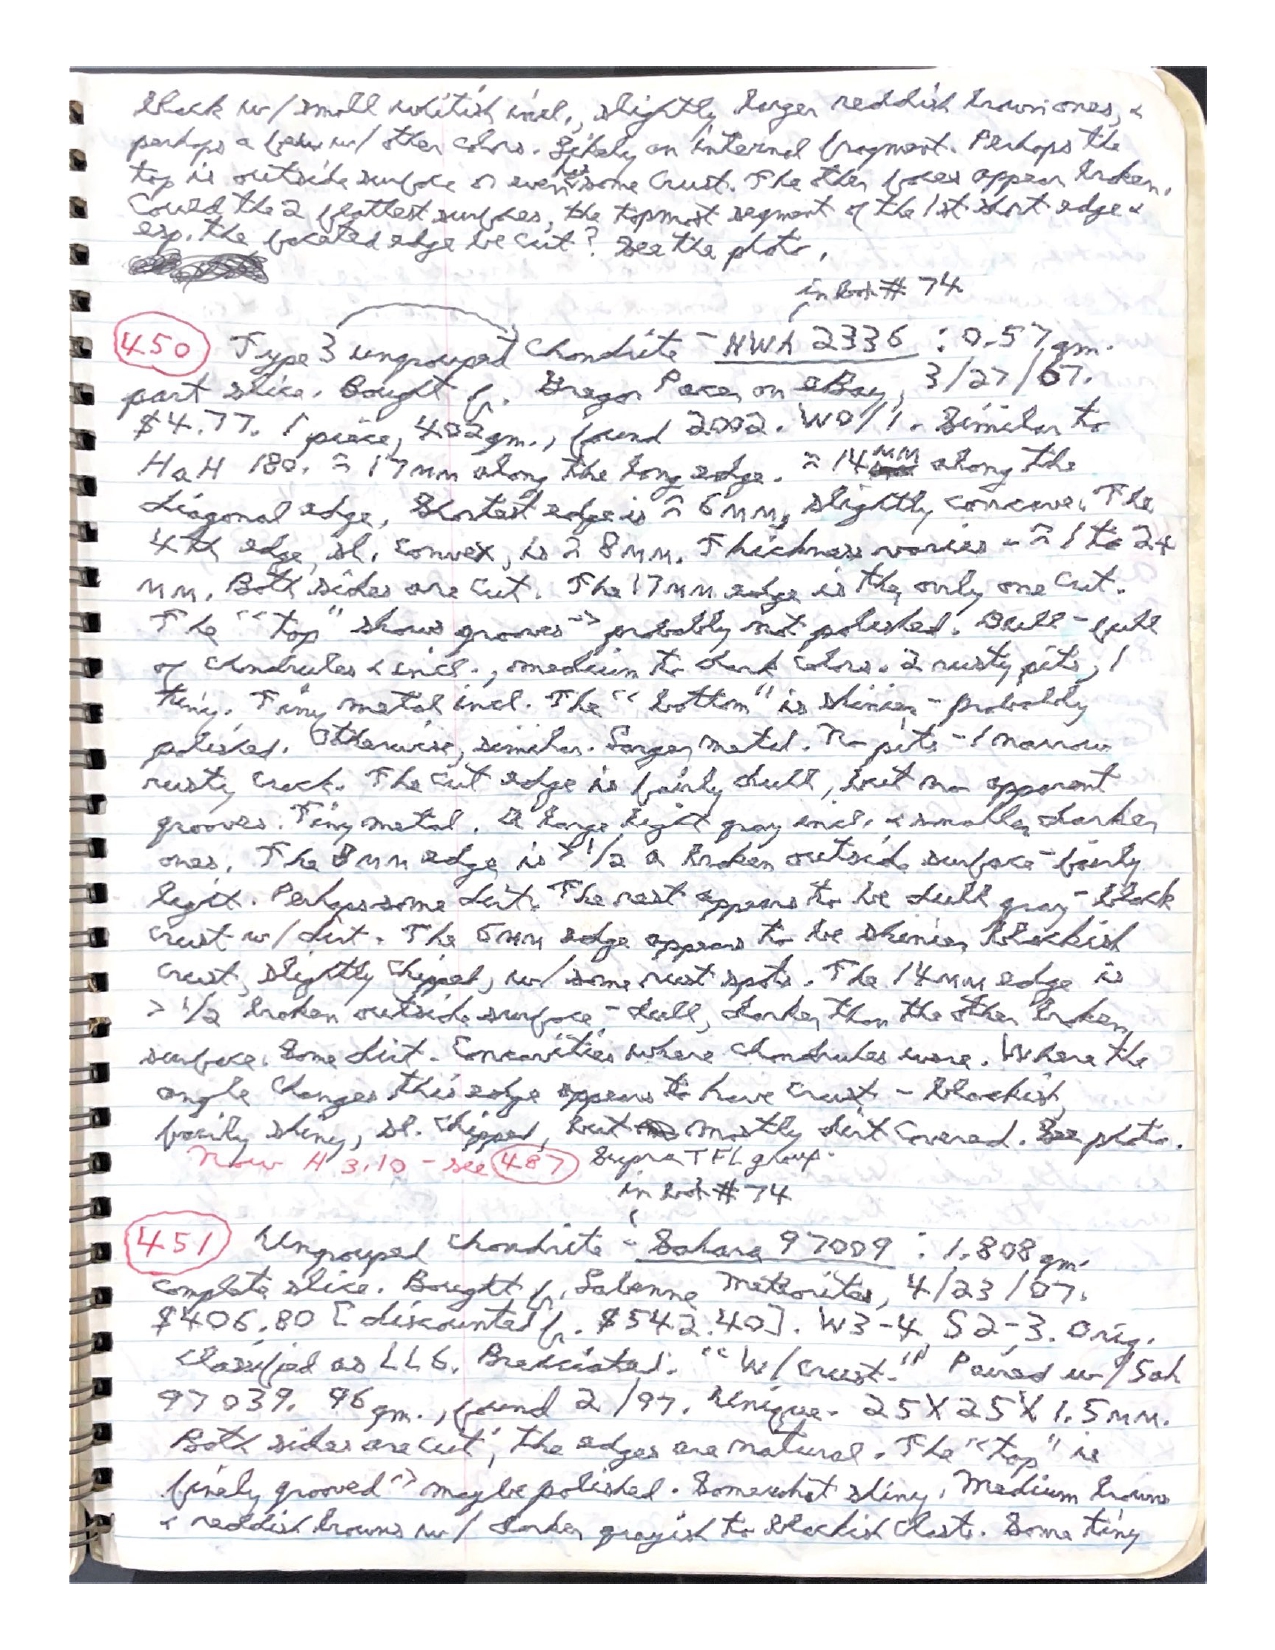 black w/ small whitish incl., slightly larger reddish brown ones, &
perhaps a few w/ other colors. Likely an internal fragment. Perhaps the
top is outside surface or even has some crust. The other faces appear broken.
Could the 2 flattest surfaces, the topmost segment of the 1st short edge &
esp. the faceted edge be cut? See the photo.
in book # 74
450 Type 3 ungrouped Chondrite - NWA 2336 : 0.57 gm.
part slice. Bought fr. Gregor Pacer on eBay, 3/27/07.
$4.77. 1 piece, 402 gm., found 2002. W0/1. Similar to
HaH 180. ≈ 17 mm along the long edge. ≈ 14 mm along the
diagonal edge. Shortest edge is ≈ 6 mm, slightly concave. The
4th edge, sl. convex, is ≈ 8 mm. Thickness varies - ≈ 1 to 2+
mm. Both sides are cut. The 17 mm edge is the only one cut.
The "top" shows grooves -> probably not polished. Dull - full
of chondrules & incl., medium to dark colors. 2 rusty pits, 1
tiny. Tiny metal incl. The "bottom" is shinier - probably
polished. Otherwise, similar. Larger metal. No pits - 1 narrow
rusty crack. The cut edge is fairly dull, but no apparent
grooves. Tiny metal. A large light gray incl. & smaller darker
ones. The 8 mm edge is > 1/2 a broken outside surface - fairly
light. Perhaps some dirt. The rest appears to be dull gray-black
crust w/ dirt. The 6 mm edge appears to be shinier blackish
crust, slightly chipped, w/ some rust spots. The 14 mm edge is
> 1/2 broken outside surface - dull, darker than the other broken
surface. Some dirt. Concavities where chondrules were. Where the
angle changes this edge appears to have crust - blackish,
fairly shiny, sl. chipped, but mostly dirt covered. See photo.
Now H 3.10 - see 487 Supra TFL group.
in book # 74
451 Ungrouped Chondrite - Sahara 97009 : 1.808 gm.
complete slice. Bought fr. Labenne Meteorites, 4/23/07.
$406.80 [discounted fr. $542.40]. W3-4 S2-3. Orig.
classified as LL6. Brecciated. "W/ crust." Paired w/ Sah
97039. 96 gm., found 2/97. Unique. 25 X 25 X 1.5 mm.
Both sides are cut; the edges are natural. The "top" is
finely grooved -> maybe polished. Somewhat shiny. Medium browns
& reddish browns w/ darker grayish to blackish clasts. Some tiny